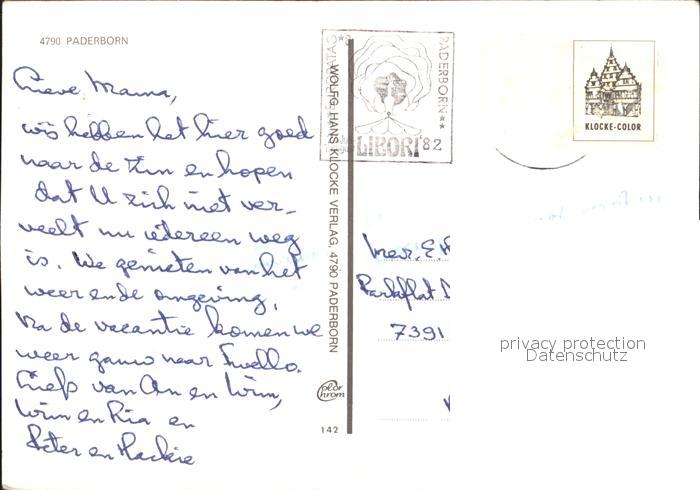 4790 PADERBORN
Lieve Mama,
wij hebben het hier goed
naar de zin en hopen
dat U zich niet ver-
veelt nu iedereen weg
is. We genieten van het
weer en de omgeving.
Na de vacantie komen we
weer gauw naar Twello.
Liefs van An en Wim,
Wim en Ria en
Peter en
WOLFG. HANS KLOCKE VERLAG, 4790 PADERBORN
142
PADERBORN
LIBORI '82
KLOCKE-COLOR
Mevr. E.
Parkflat
7391
privacy protection
Datenschutz